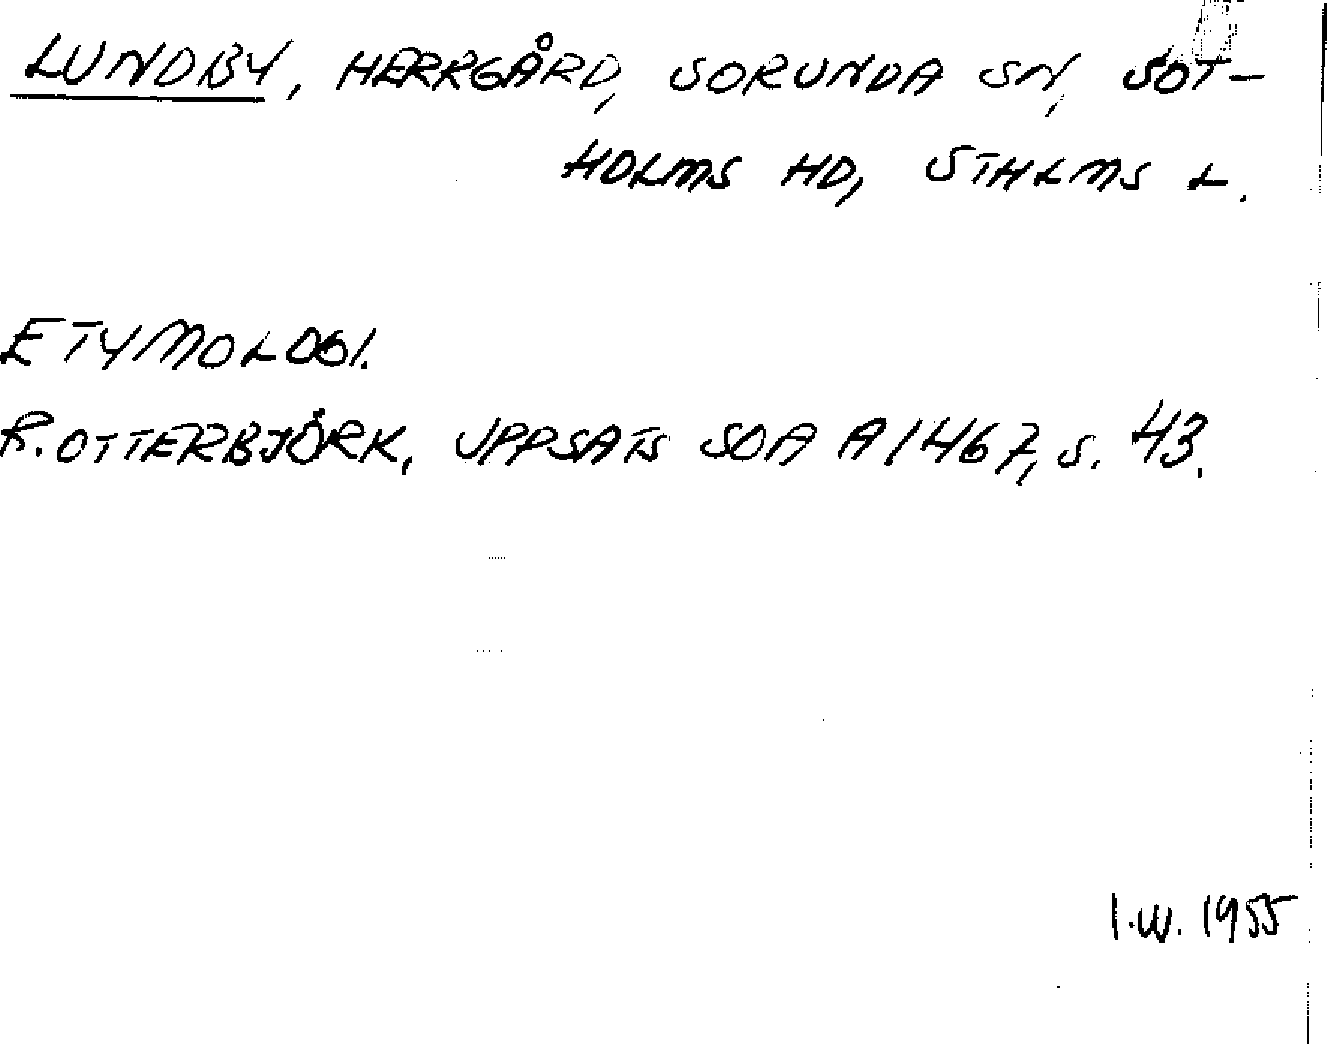 LUNDBY, HERRGÅRD, SORUNDA SN, SOT-
HOLMS HD, STHLMS L.
ETYMOLOGI.
R. OTTERBJÖRK, UPPSATS SOA A 1467, S. 43.
I.W. 1955